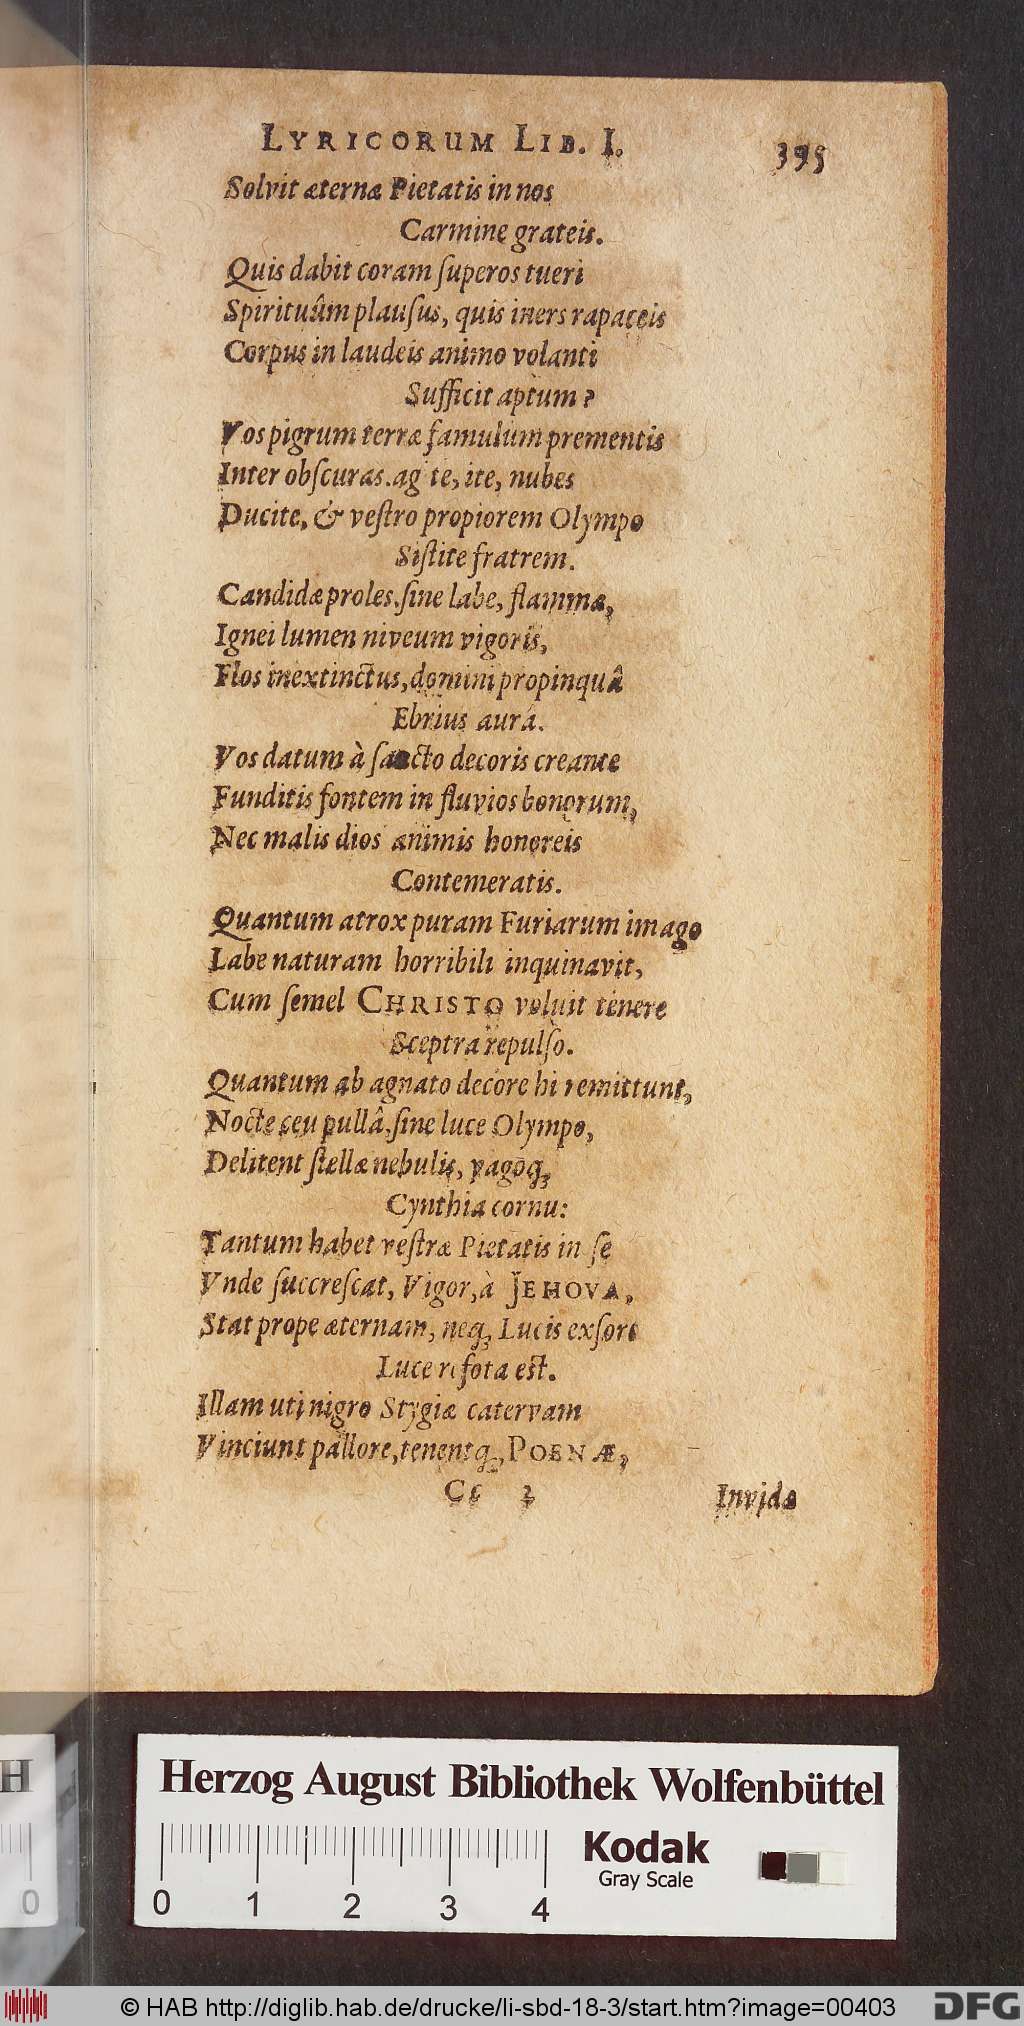 LYRICORUM LIB. I. 395
Solvit æternæ Pietatis in nos
Carmine grateis.
Quis dabit coram ſuperos tueri
Spirituûm plauſus, quis iners rapaceis
Corpus in laudeis animo volanti
Sufficit aptum?
Vos pigrum terræ famulum prementis
Inter obſcuras, ag te, ite, nubes
Ducite, & veſtro propiorem Olympo
Siſtite fratrem.
Candidæ proles, ſine labe, flammæ,
Ignei lumen niveum vigoris,
Flos inextinctus, domini propinquâ
Ebrius aurâ.
Vos datum à ſancto decoris creante
Funditis fontem in fluvios bonorum,
Nec malis dios animis honoreis
Contemeratis.
Quantum atrox puram Furiarum imago
Labe naturam horribili inquinavit,
Cum ſemel CHRISTO voluit tenere
Sceptra repulſo.
Quantum ab agnato decore hi remittunt,
Nocte ceu pullâ, ſine luce Olympo,
Delitent ſtellæ nebulis, vagoq;
Cynthia cornu:
Tantum habet veſtræ Pietatis in ſe
Vnde ſuccreſcat, Vigor, à JEHOVA,
Stat prope æternam, neq; Lucis exſors
Luce refota est.
Illam uti nigro Stygiæ catervam
Vinciunt pallore, tenentq;, POENÆ,
Cc 2 Invidæ
H
0
Herzog August Bibliothek Wolfenbüttel
0 1 2 3 4
Kodak
Gray Scale
© HAB http://diglib.hab.de/drucke/li-sbd-18-3/start.htm?image=00403
DFG